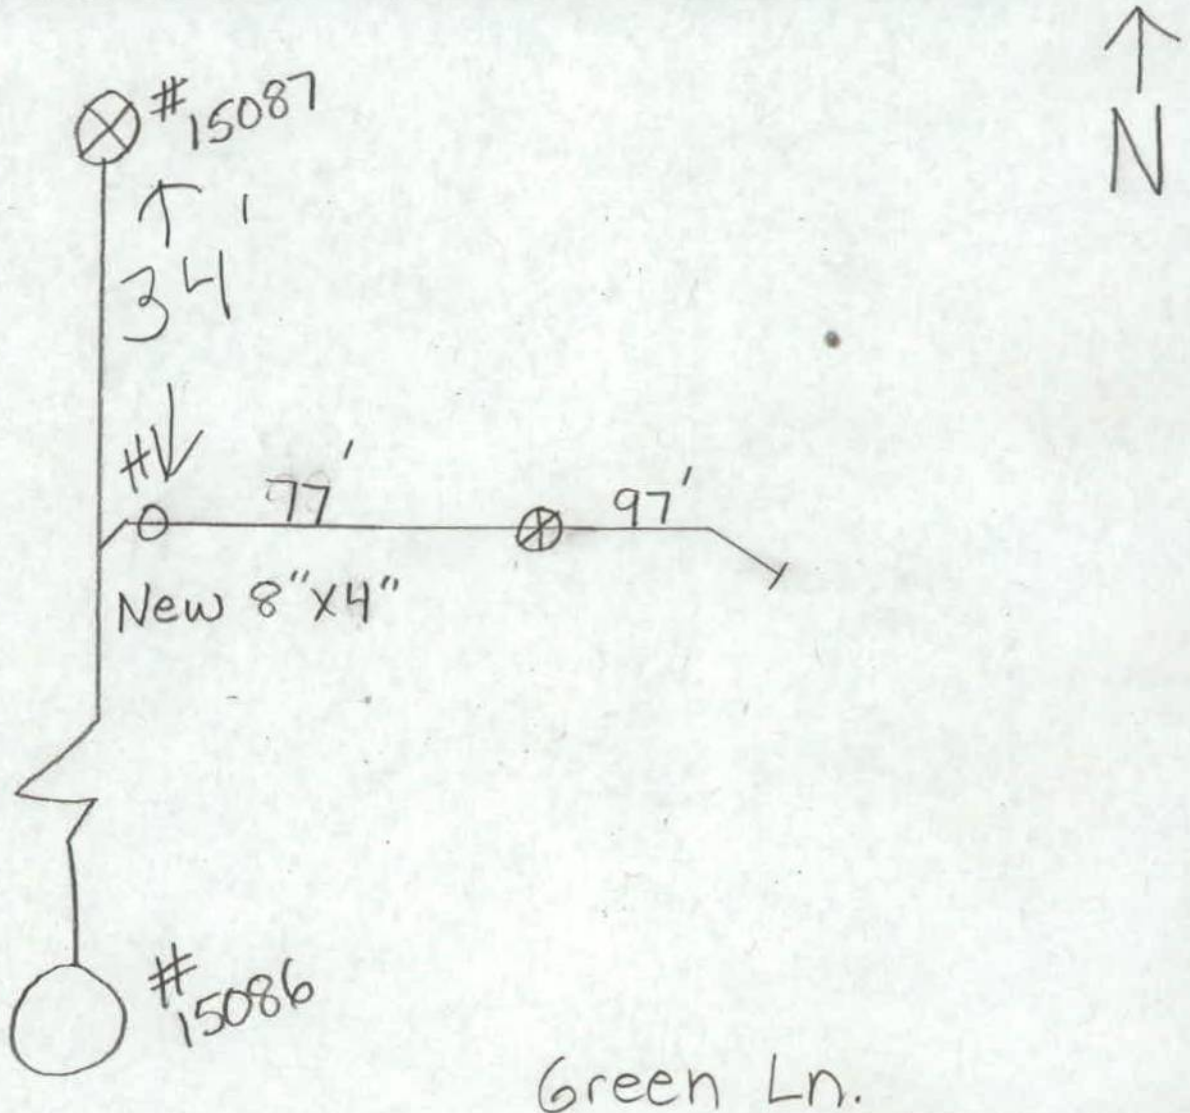 N
#15087
34'
#
77'
97'
New 8"x4"
#15086
Green Ln.